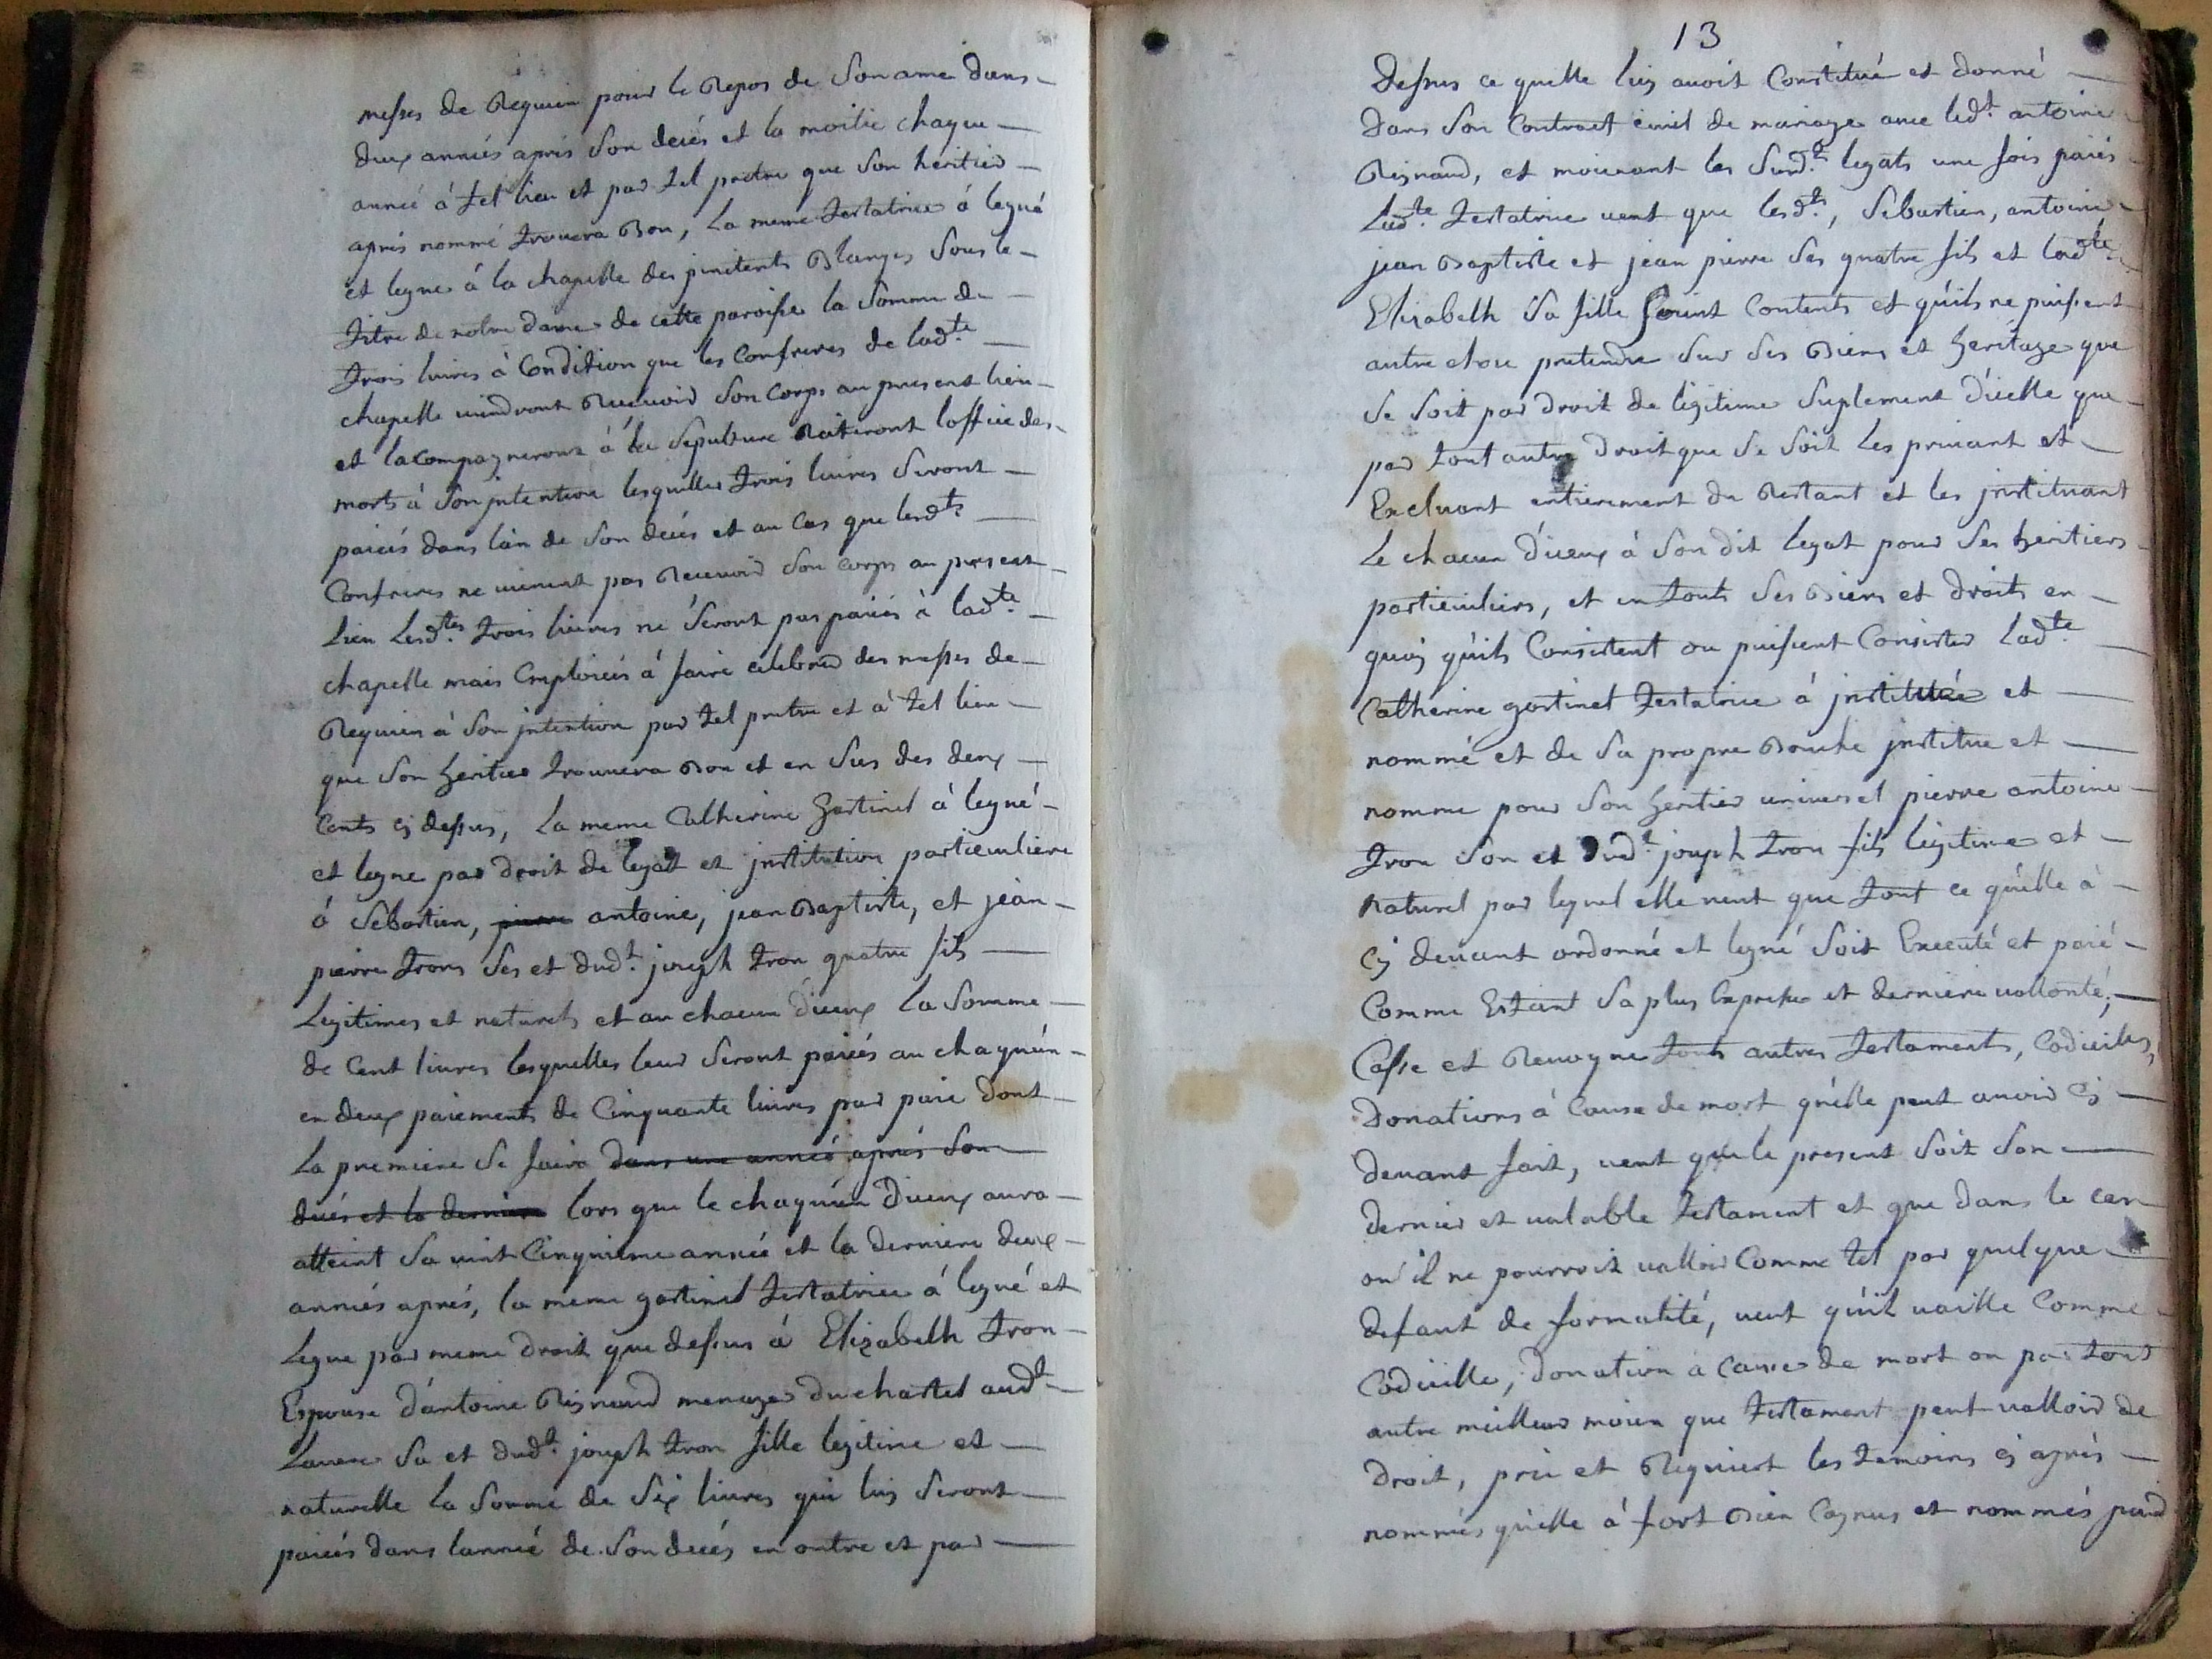 messes de Requien pour le Repos de Son ame dans
deux années aprés Son decés et la moitié chaque
année à tel lieu et par tel pretre que Son heritier
aprés nommé trouvera Bon, La meme testatrice à legué
et legue à la chapelle des penitents Blanqs Sous le
titre de notre dame de cette paroisse la Somme de
trois livres à Condition que les Confreres de lad.te
chapelle viendront Recevoir Son Corps au present lieu
et lacompagneront à la Sepulture Reciteront loffice des
morts à Son jntention lesquelles trois livres Seront
paiées dans lan de Son decés et au Cas que lesd.ts
Confreres ne vienent pas Recevoir Son Corps au present
Lieu Lesd.tes trois livres ne Seront pas paiées à lad.te
chapelle mais Emploiées à faire celebrer des messes de
Requien à Son jntention par tel pretre et à tel lieu
que Son heritier trouvera Bon et en Sus des deux
Cents cy dessus, La meme Catherine gartinel à legué
et legue par droit de legat et jnstitution particuliere
à Sebastien, antoine, jean Baptiste, et jean
pierre trons Ses et dud.t joseph tron quatre fils
Legitimes et naturels et au chacun d'ieux La Somme
de Cent livres lesquelles leur Seront paiées au chaqu'un
en deux paiements de Cinquante livres par paie dont
La premiere Se faira dans une année aprés Son
decés et la derniere lors que le chaqu'un d'ieux aura
atteint Sa vint Cinquieme année et la derniere deux
années aprés, la meme gartinel testatrice à legué et
Legue par meme droit que dessus à Elizabelh tron
Espouse d'antoine Reynaud menager du chastel aud.t
Sa et dud.t joseph tron fille legitime et
naturelle la Somme de Six livres qui luy Seront
paiées dans lannée de Son decés en outre et par
13
Dessus ce quelle luy avoit Constitué et donné
dans Son Contract civil de mariage avec led.t antoine
Reynaud, et moienant les Sus d.ts legats une fois paiés
Lad.te testatrice veut que lesd.ts, Sebastien, antoine
jean Baptiste et jean pierre Ses quatre fils et lad.te
Elizabelh Sa fille Soint Contents et qu'ils ne puissent
autre chose pretendre Sur Ses Biens et heritage que
Se Soit par droit de legitime Suplement d'icelle que
par tout autre droit que Se Soit Les privant et
Excluant entierement du Restant et les jnstituant
Le chacun d'ieux à Son dit legat pour Ses heritiers
particuliers, et en touts Ses Biens et droits en
quoy qu'ils Consistent ou puissent Consister Lad.te
Catherine gartinel testatrice à jnstitué et
nommé et de Sa propre Bouche jnstitue et
nomme pour Son heritier universel pierre antoine
tron Son et dud.t joseph tron fils legitime et
naturel par lequel elle veut que tout ce qu'elle à
Cy devant ordonné et legué Soit Executé et paié
Comme Estant Sa plus Expresse et derniere vollonté,
Casse et Revoque touts autres testaments, Codicilles,
Donations à Cause de mort qu'elle peut avoir Cy
devant fait, veut que le present Soit Son
dernier et valable testament et que dans le cas
ou il ne pourroit valloir Comme tel par quelque
defaut de formalité, veut qu'il vaille Comme
Codicille, donation a Cause de mort ou par tout
autre meilleur moien que testament peut valloir de
Droit, prie et Requiert les temoins cy aprés
nommés qu'elle à fort Bien Cognus et nommés pour